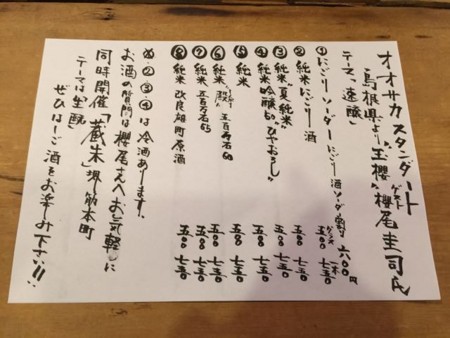 オオサカスタンダード
島根県より"玉櫻" ゲスト 櫻尾圭司氏
テーマ"速醸"
①にごりソーダー にごり酒ソーダ割 六〇〇円
グラス 一本
②純米にごり酒 五〇〇 七五〇
③純米"夏純米" 五〇〇 七五〇
④純米吟醸50"ひやおろし" 五〇〇 七五〇
⑤純米 五〇〇 七五〇
⑥純米 五百万石60 五〇〇 七五〇
⑦純米 五百万石65 五〇〇 七五〇
⑧純米 改良雄町原酒 五〇〇 七五〇
※②③④は冷酒あります。
お酒の質問は櫻尾さんへお気軽に
同時開催「蔵朱」堺筋本町
テーマは生酛
ぜひはしご酒をお楽しみ下さい!!